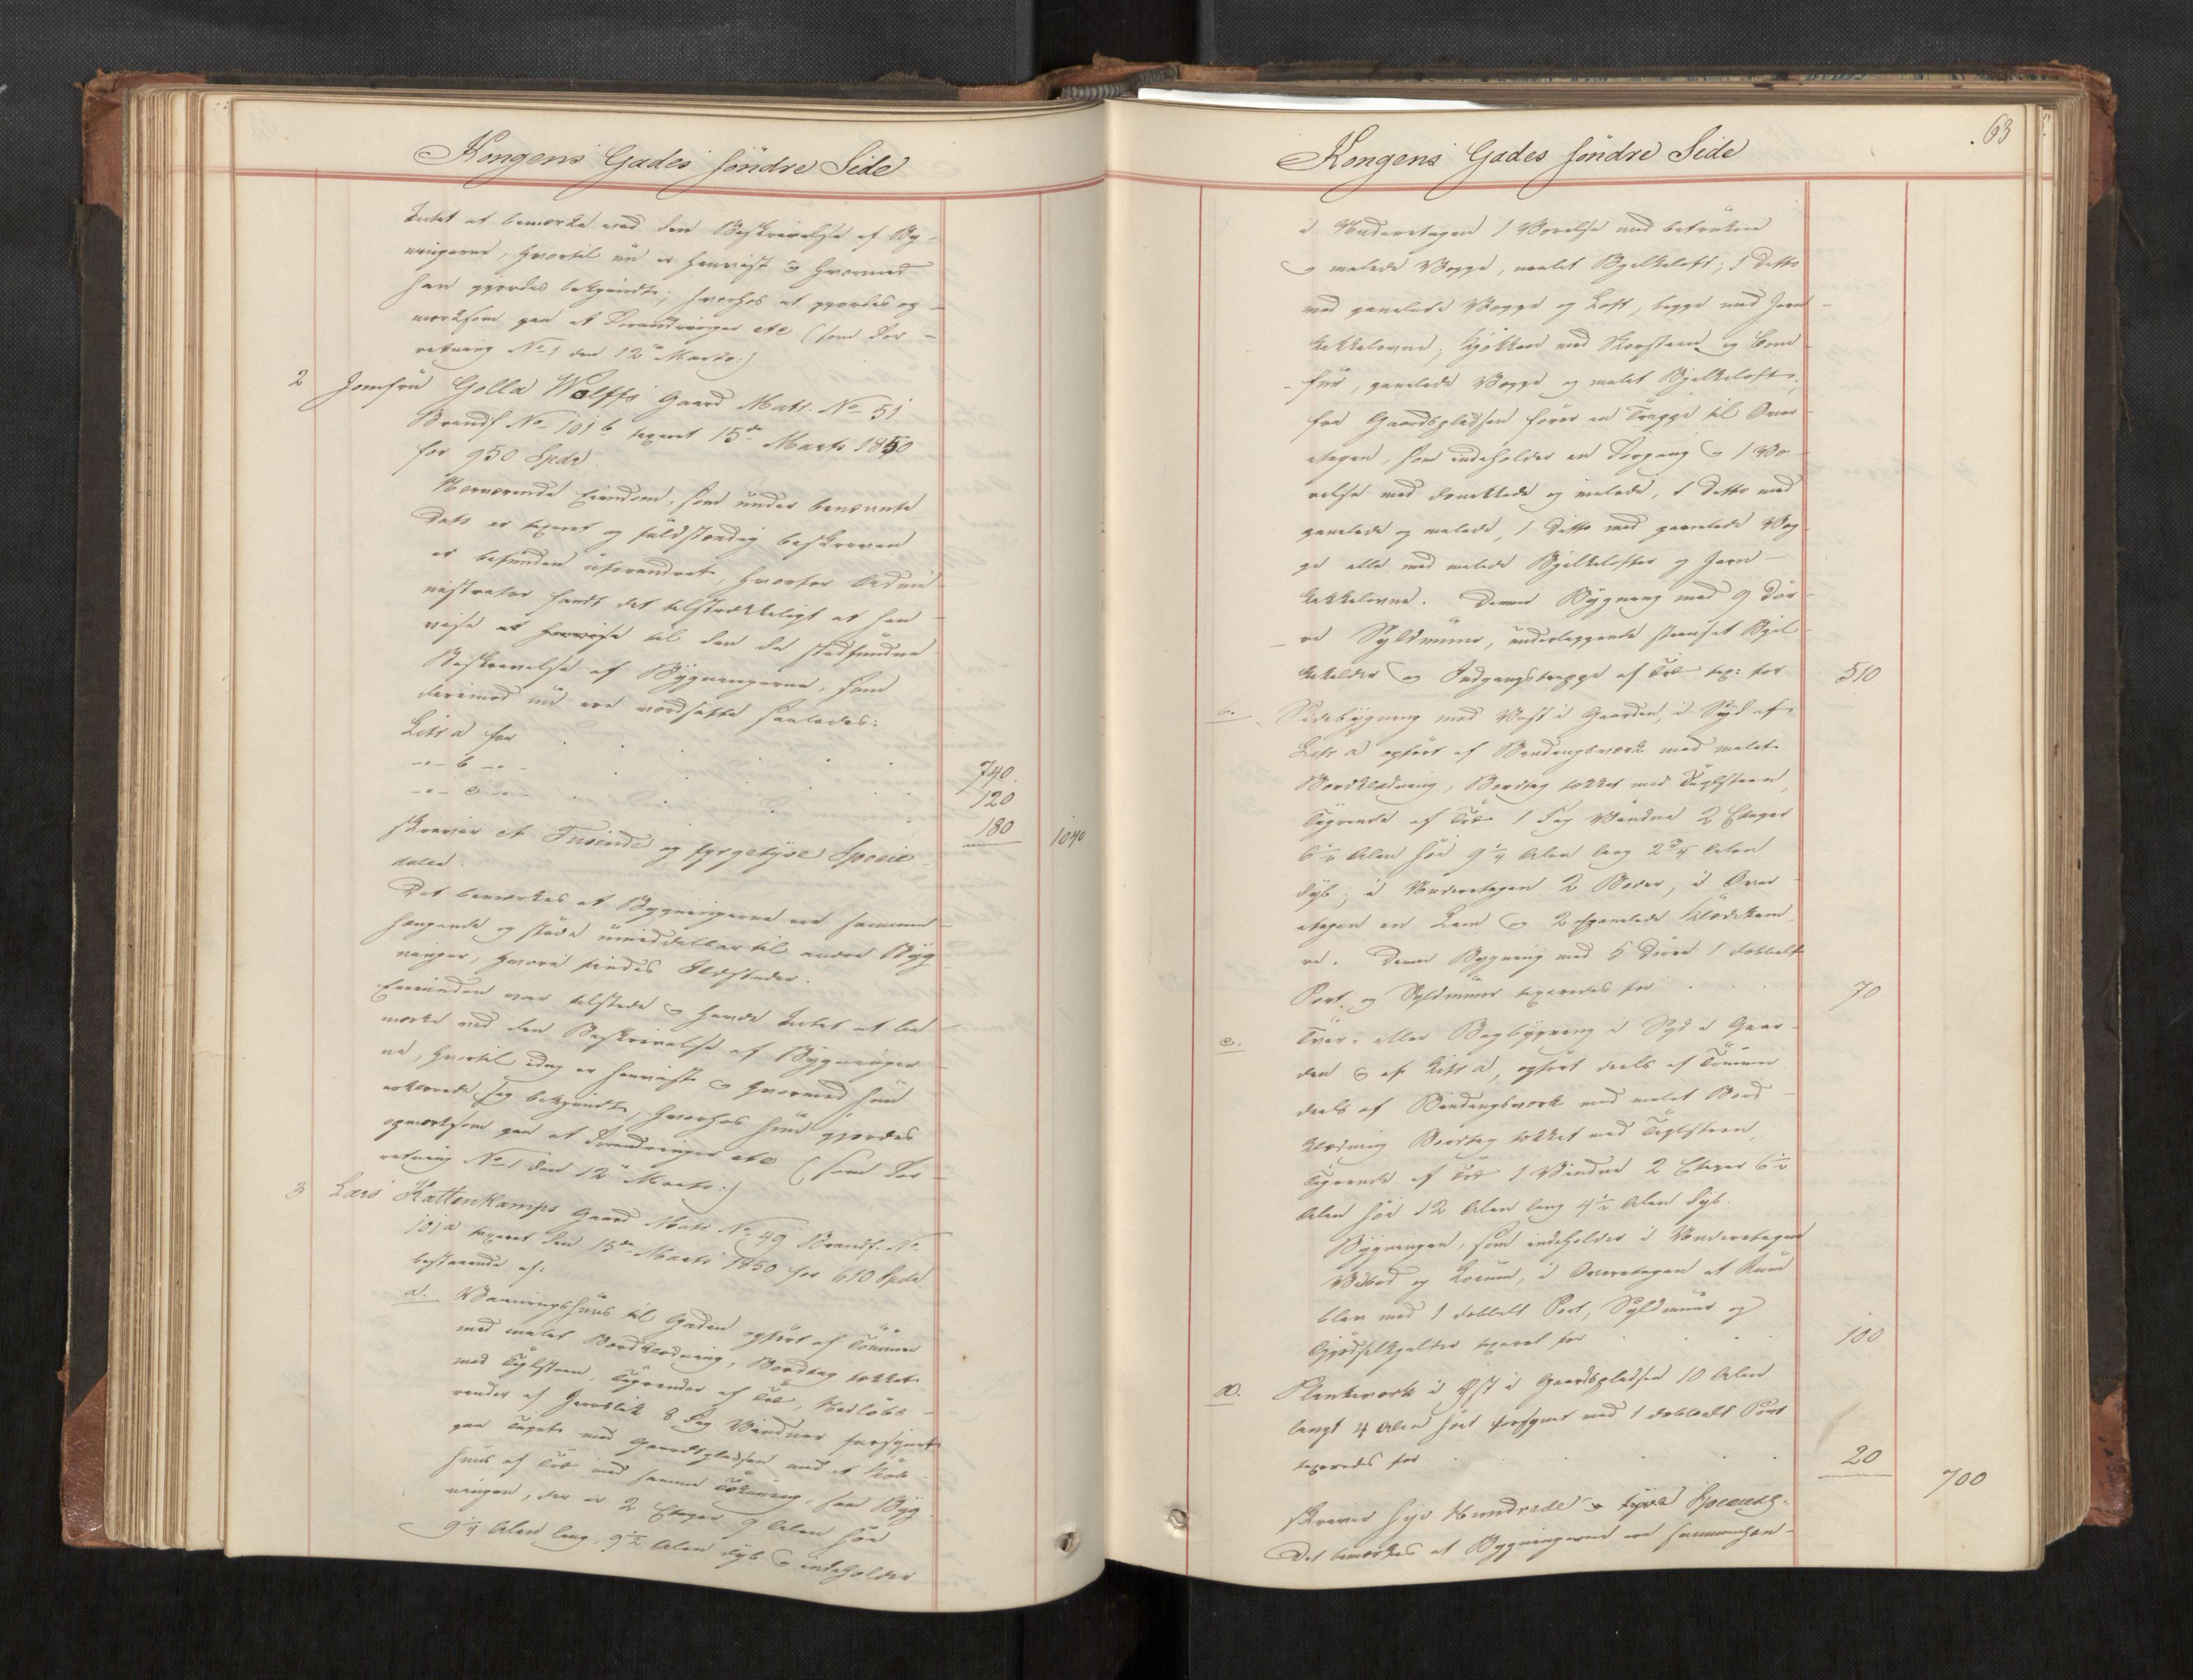 Kongens Gades söndre Side
Intet at bemærke ved den Beskrivelse af Byg-
ningerne, hvortil nu er henvist og hvormed
han gjordes bekjendt; hvorhos at gjordes op-
mærksom paa at Forandringer etc (som For-
retning No 1 den 12te Marts:)
2 Jomfru Golla Wolffs Gaard Matr. No 51
Brandf No 101 b taxeret 15de Marts 1850
for 950 Spdr
Nærværende Eiendom, som under benævnte
Dato er taxeret og fuldstændig beskreven
er befunden uforandret, hvorfor Admi-
nistrator fandt det tilstrækkeligt at hen-
vise at henvise til den da stedfundne
Beskrivelse af Bygningerne, som
derimod nu ere værdsatte saaledes:
Litr a for 740.
-"- b -"- 120
-"- c -"- 180 1040
skriver et Tusinde og fyrgetyve Specie-
daler.
Det bemærkes at Bygningerne ere sammen-
hængende og støde umiddelbar til andre Byg-
ninger, hvori findes Ildsteder.
Eierinden var tilstede og havde Intet at be-
mærke ved den Beskrivelse af Bygninger-
ne, hvortil idag er henvist og hvormed hun
erklærede sig bekjendt, hvorhos hun gjordes
opmærksom paa at Forandringer etc (som For-
retning No 1 den 12te Marts:)
3 Lars Kattenkamps Gaard Matr No 49 Brandf. No
101 a taxeret den 15de Marts 1850 for 610 Spdr
bestaaende af:
a. Vaaningshuus til Gaden opført af Tömmer
med malet Bordklædning, Bordtag tækket
med Teglsteen, Tagrender af Træ, Nedløbs-
render af Jernblik 8 Fag Vinduer forsynet
paa Taget mod Gaardspladsen med et
huus af Træ med samme Tækning, saa Byg-
ningen, der er 2 Etager 9 Alen høi
9 1/4 Alen lang, 9 1/2 Alen dyb og indeholder
63
Kongens Gades söndre Side
i Underetagen 1 Værelse med betrukne
og malede Vægge, malet Bjelkeloft; 1 Ditto
med panelede Vægge og Loft, begge med Jern-
kakkelovne; Kjökken med Skorsteen og Bom-
fur, panelede Vægge og malet Bjelkeloft;
fra Gaardspladsen fører en Trappe til Over-
etagen, som indeholder en Forgang og 1 Væ-
relse med betrukkede og malede, 1 Ditto med
panelede og malede, 1 Ditto med panelede Væg-
ge alle med malede Bjelkelofter og Jern-
kakkelovne. Denne Bygning med 9 Dør-
re Syldmuur, underliggende steensat Bjel-
kekelder og Indgangstrappe af Træ tax: for 510
b. Sidebygning mod Vest i Gaarden, i Syd af
Litr a opført af Bindingsværk med malet
Bordklædning, Bordtag tækket med Teglsteen,
Tagrende af Træ 1 Fag Vindue 2 Etager
6 1/2 Alen høi 9 1/4 Alen lang 2 3/4 Alen
dyb; i Underetagen 2 Boder, i Over-
etagen en Lem og 2 panelede Klædekam-
re. Denne Bygning med 5 Dörre 1 dobbelt
Port og Syldmuur taxeredes for 70
c. Tvær- eller Bagbygning i Syd i Gaar-
den og af Litr a, opført deels af Tömmer
deels af Bindingsværk med malet Bord-
klædning Bordtag tækket med Teglsteen,
Tagrende af Træ 1 Vindue 2 Etager 6 1/2
Alen høi 12 Alen lang 4 1/2 Alen dyb.
Bygningen, som indeholder i Underetagen
Vedbod og Locum, i Overetagen et Rum
blev med 1 dobbelt Port, Syldmuur og
Gjödselkjelder taxeret for 100
d. Plankeværk i Øst i Gaardspladsen 10 Alen
langt 4 Alen høit forsynet med 1 dobbelt Port
taxeredes for 20 700
skriver syv Hundrede og tyve Speciedlr:
Det bemærkes at Bygningerne ere sammenhæn-